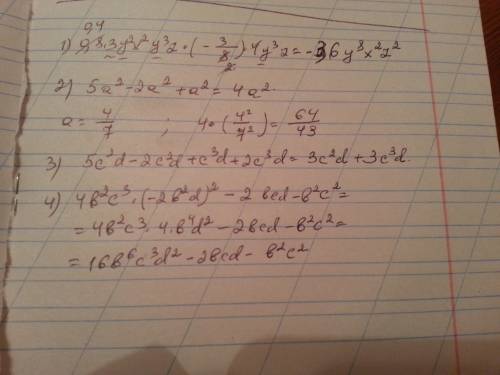 94
1) 98.3y²x²y³z · (-3/8) 4y³z = -3,6y⁸x²z²
2) 5a² - 2a² + a² = 4a²
a = 4/7 ; 4 · (4²/7²) = 64/43
3) 5c²d - 2c²d + c³d + 2c³d = 3c²d + 3c³d.
4) 4b²c³ · (-2b²d)² - 2bcd - b²c² =
= 4b²c³ · 4b⁴d² - 2bcd - b²c² =
= 16b⁶c³d² - 2bcd - b²c²